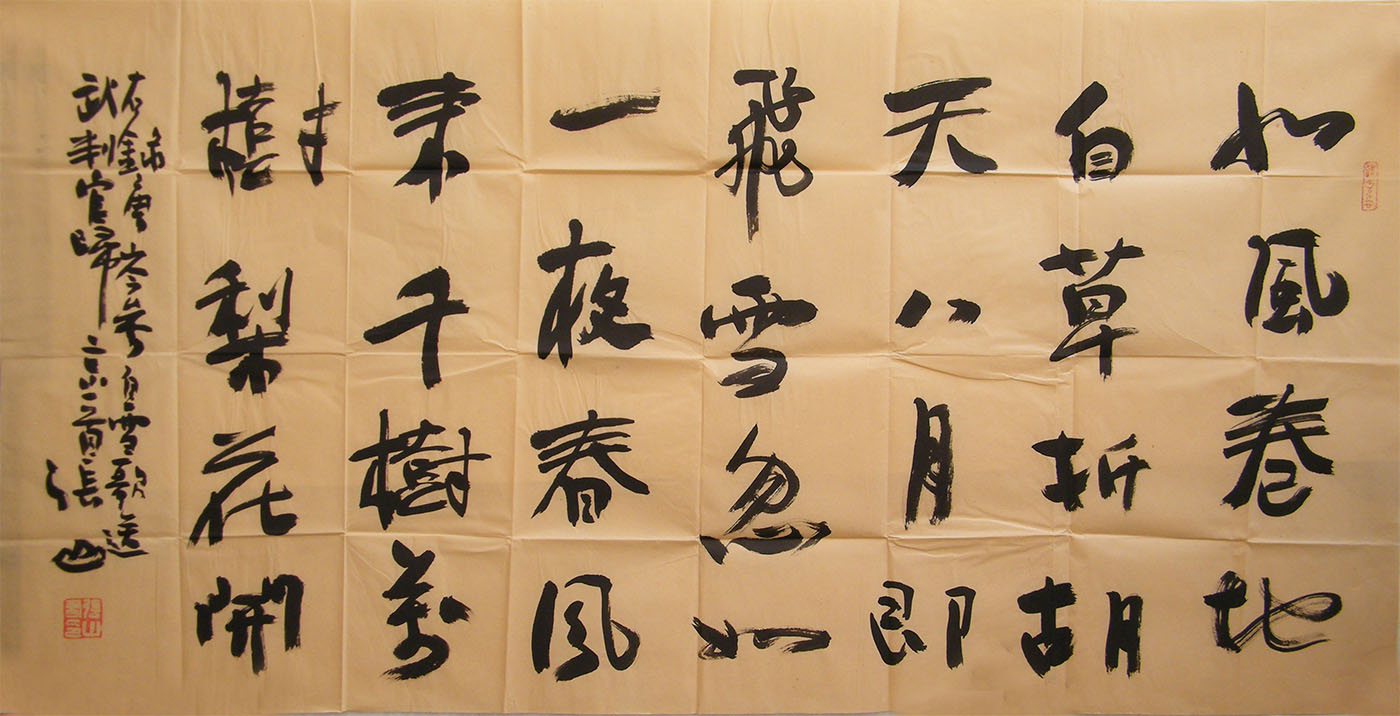 北風卷地
白草折胡
天八月即
飛雪忽如
一夜春風
来千樹萬
樹梨花開
右錄唐岑參白雪歌送
武判官歸京一首張山